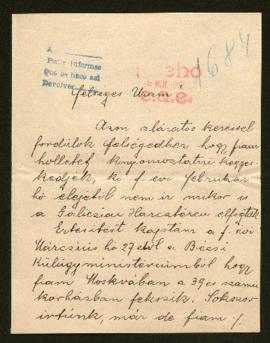 A
Pedir informes
Que se hace así
Devolver
1684
Felséges Uram!
Azon alázatos kéréssel
fordúlok felségedhez hogy fiam
hollétét kinyomoztatni kegyes
kedjék, ki f. évi február
hó elejétől nem ír mikor is
a Galicziai Harcztéren elfogták
Értesítést kaptam a f. évi
Márczius hó 27 étől a Bécsi
Külügyministeriumból hogy
fiam Moszkvában a 39 es számu
kórházban fekszik. Sokszor
írtunk, már de fiam